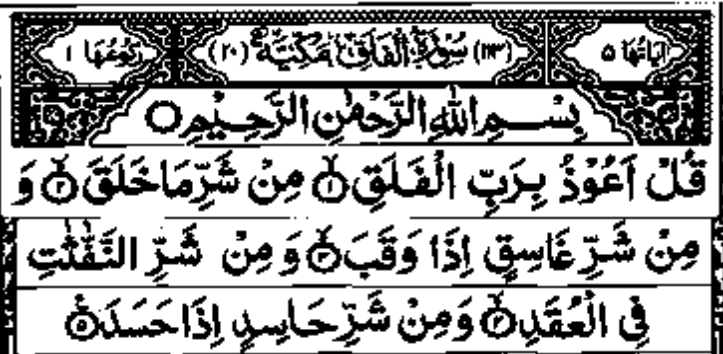 اٰيَاتُهَا ۵ (۱۱۳) سُوْرَةُ الْفَلَقِ مَكِّيَّةٌ (۲۰) رُكُوْعُهَا ۱
بِسْــمِ اللهِ الرَّحْمٰنِ الرَّحِيْمِ ○
قُلْ اَعُوْذُ بِرَبِّ الْفَلَقِ ۙ﴿۱﴾ مِنْ شَرِّ مَا خَلَقَ ۙ﴿۲﴾ وَ
مِنْ شَرِّ غَاسِقٍ اِذَا وَقَبَ ۙ﴿۳﴾ وَ مِنْ شَرِّ النَّفّٰثٰتِ
فِی الْعُقَدِ ۙ﴿۴﴾ وَ مِنْ شَرِّ حَاسِدٍ اِذَا حَسَدَ ﴿۵﴾